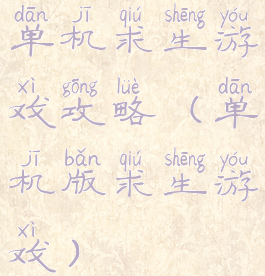 dān jī qiú shēng yóu
单机求生游
xì gōng lüè dān
戏攻略（单
jī bǎn qiú shēng yóu
机版求生游
xì
戏）